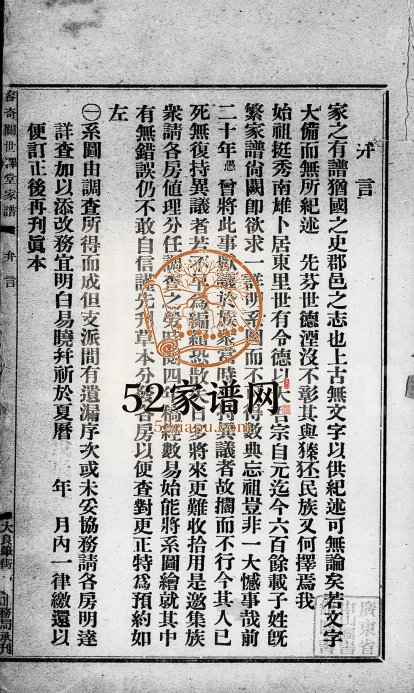 弁言
家之有譜猶國之史郡邑之志也上古無文字以供紀述可無論矣若文字
大備而無所紀述 先芬世德湮沒不彰其與獉狉民族又何擇焉我
始祖挺秀南雄卜居東里世有令德以大吾宗自元迄今六百餘載子姓既
繁家譜尚闕即欲求一詳明系圖而不可得數典忘祖豈非一大憾事哉前
二十年愚曾將此事獻議於族衆當時有持異議者故擱而不行今其人已
死無復持異議者若不草為編組恐故老日多將來更難收拾用是邀集族
衆請各房值理分任調查之勞時閱四 稿經數易始能將系圖繪就其中
有無錯誤仍不敢自信謹先刋草本分 各房以便查對更正特爲預約如
左
㊀系圖由調查所得而成但支派間有遺漏序次或未妥協務請各房明達
詳查加以添改務宜明白易曉幷祈於夏曆 年 月內一律繳還以
便訂正後再刋眞本
容奇關世澤堂家譜 弁言
大良
務局承刋
廣東省
52家谱网
52jiapu.com